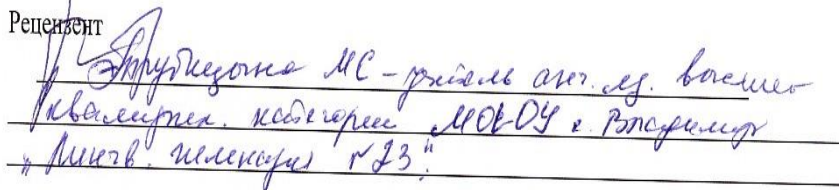 Рецензент
Трубицына МС - учитель анг. яз. высшей
квалифик. категории г. Владимир
"Лингв. гимназия №23"